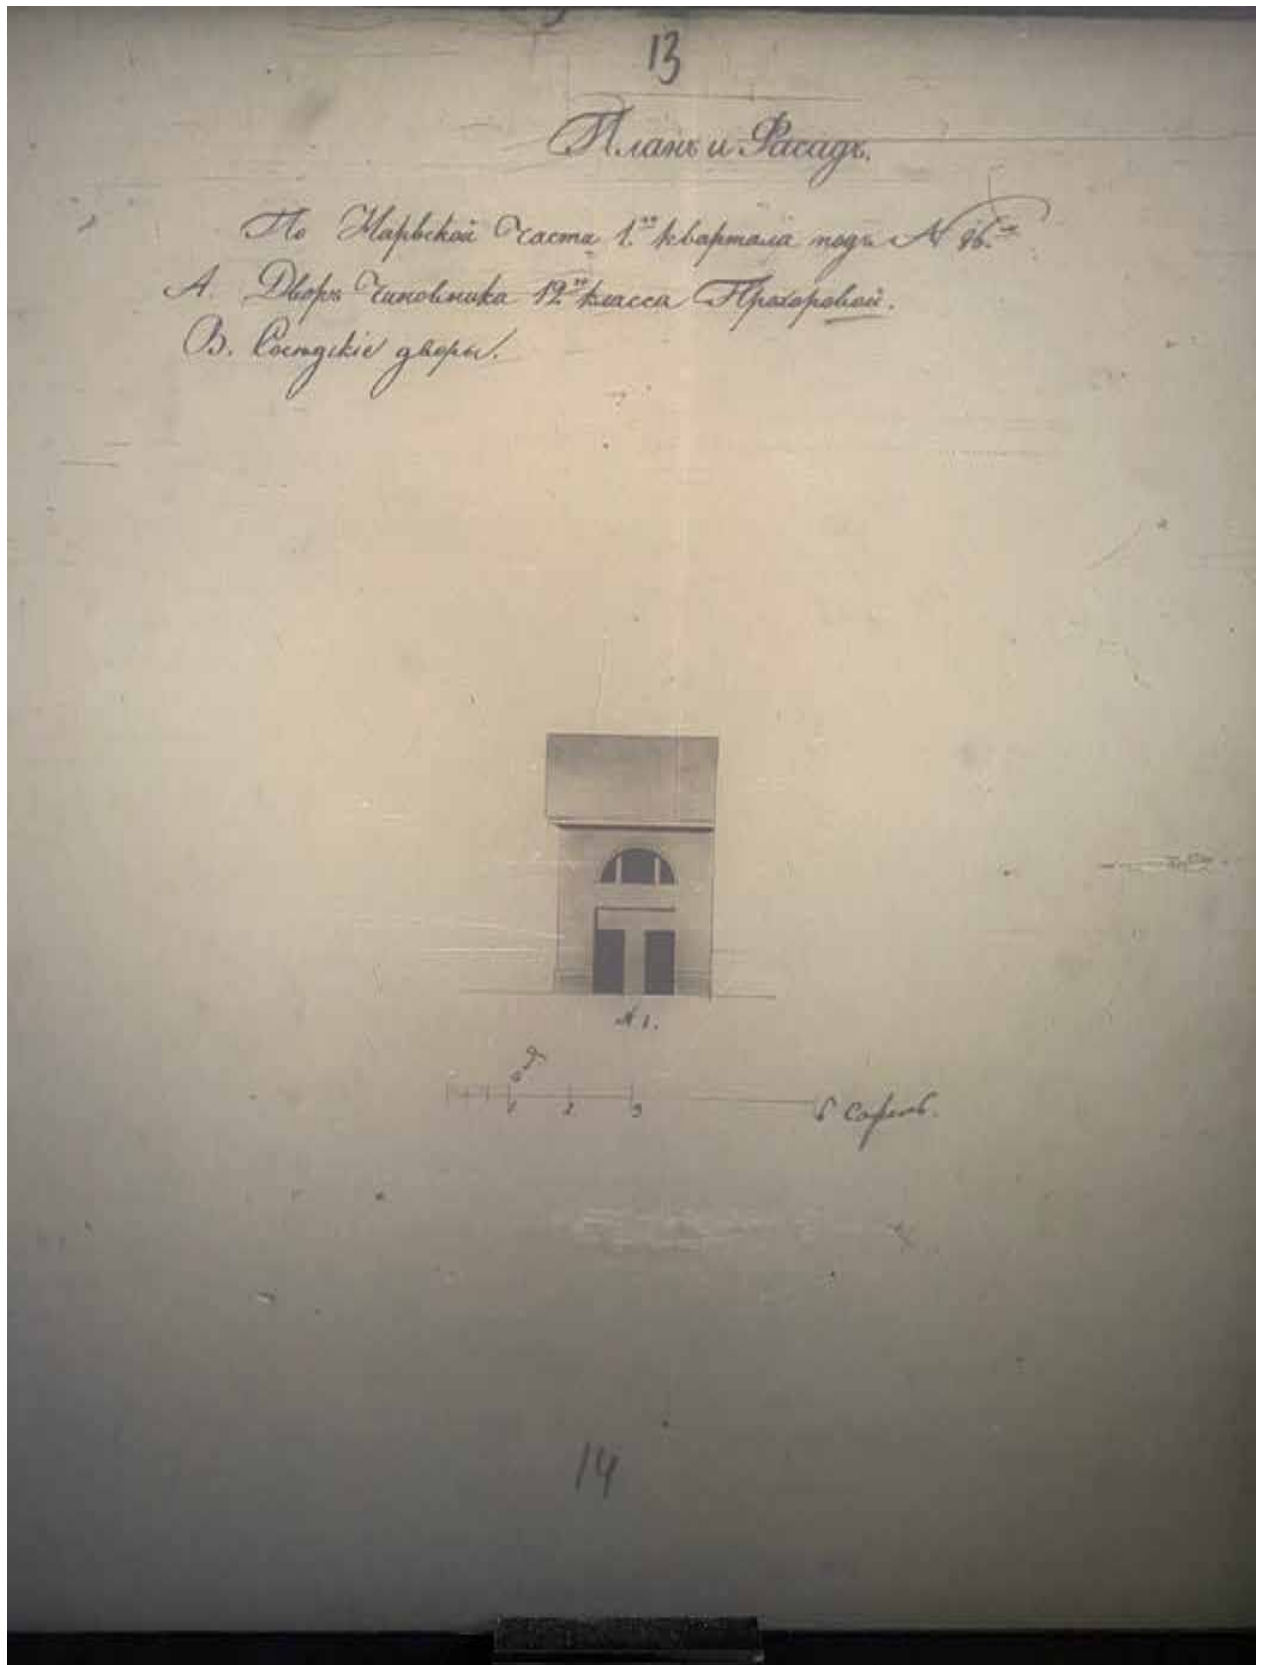 13
Планъ и Фасадъ.
По Нарвской Части 1.го квартала подъ №
А. Дворъ Чиновника 12го класса Прохоровой.
В. Соседскіе дворы.
№ 1.
1 2 3 саженъ.
14